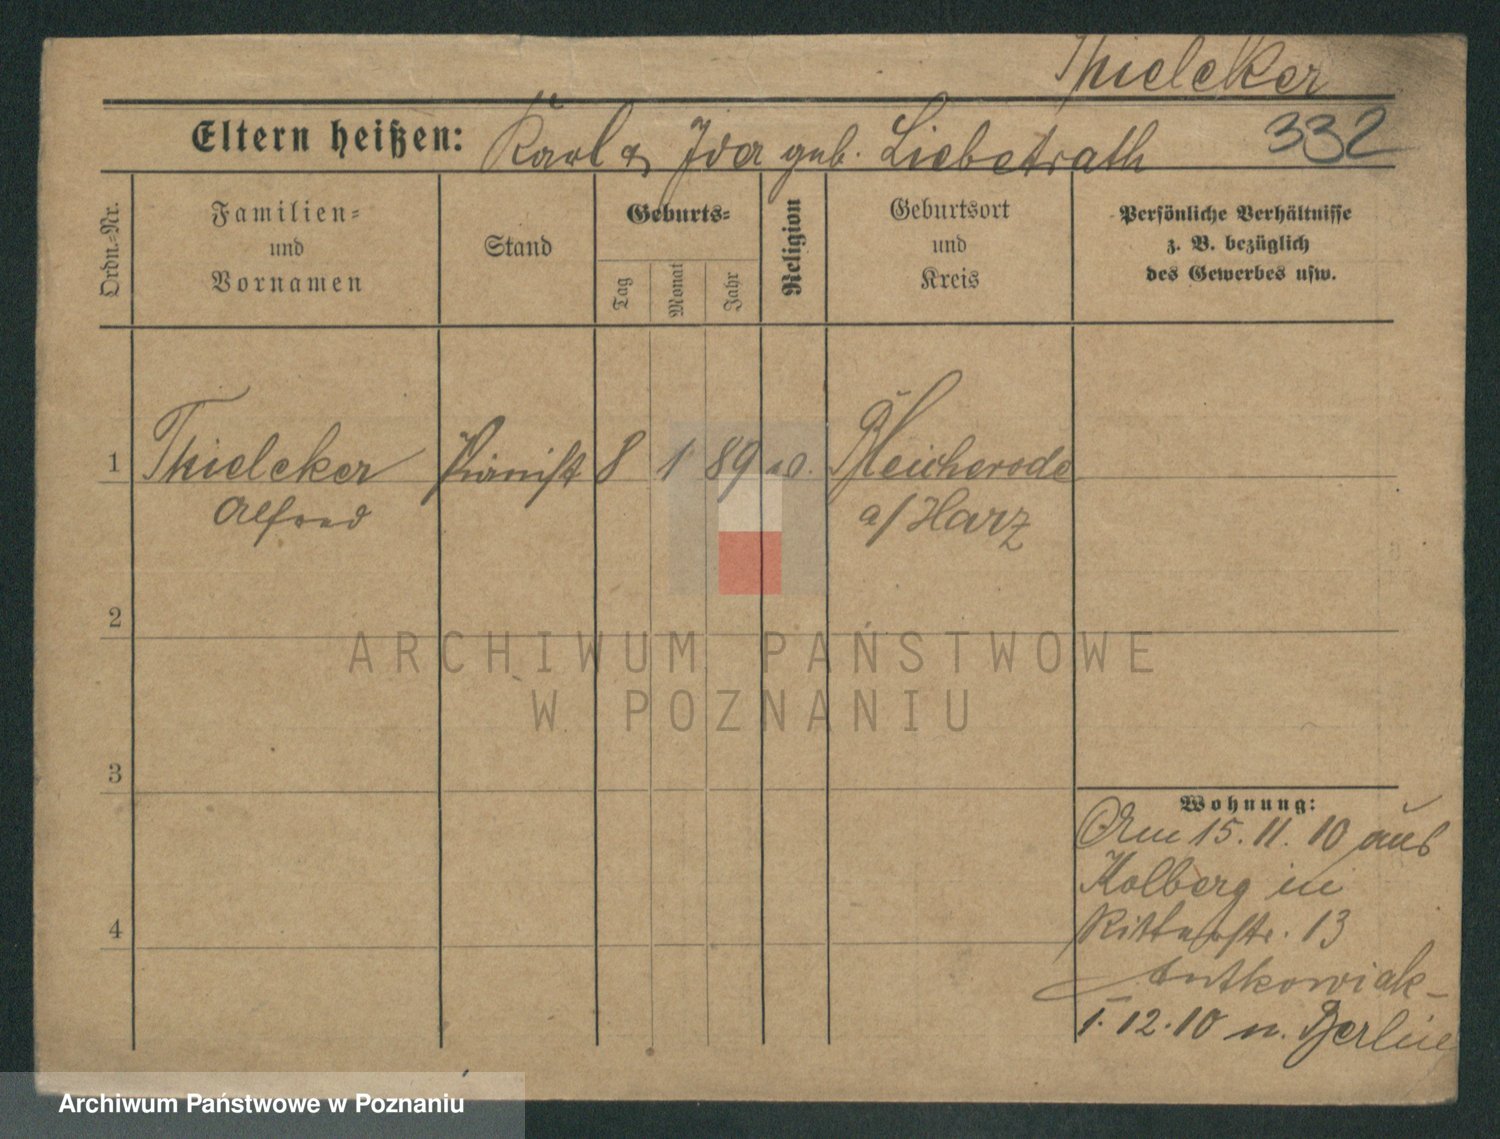 Thielcker
Eltern heißen: Karl & Ida geb. Liebetrath 332
Ordn.-Nr.
Familien-
und
Vornamen
Stand
Geburts-
Tag
Monat
Jahr
Religion
Geburtsort
und
Kreis
Persönliche Verhältnisse
z. B. bezüglich
des Gewerbes usw.
1 Thielcker Pianist 8 1 89 Bleicherode
Alfred a/Harz
2
ARCHIWUM PAŃSTWOWE
W POZNANIU
3
Wohnung:
Am 15.11.10 aus
Kolberg in
Ritterstr. 13
4
Antkowiak-
1.12.10 n. Berlin
Archiwum Państwowe w Poznaniu